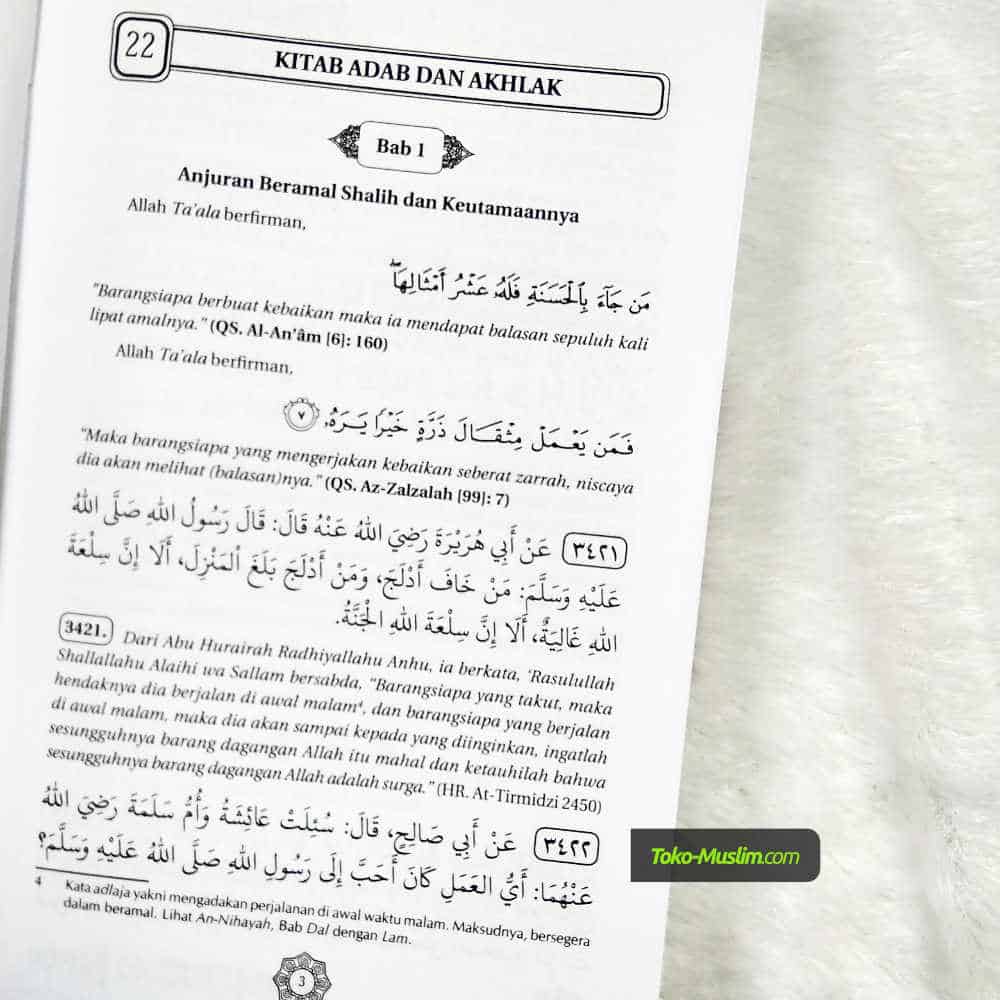 22
KITAB ADAB DAN AKHLAK
Bab 1
Anjuran Beramal Shalih dan Keutamaannya
Allah Ta'ala berfirman,
مَن جَآءَ بِٱلْحَسَنَةِ فَلَهُۥ عَشْرُ أَمْثَالِهَا ۖ
"Barangsiapa berbuat kebaikan maka ia mendapat balasan sepuluh kali
lipat amalnya." (QS. Al-An'âm [6]: 160)
Allah Ta'ala berfirman,
فَمَن يَعْمَلْ مِثْقَالَ ذَرَّةٍ خَيْرًا يَرَهُۥ ٧
"Maka barangsiapa yang mengerjakan kebaikan seberat zarrah, niscaya
dia akan melihat (balasan)nya." (QS. Az-Zalzalah [99]: 7)
٣٤٢١ عَنْ أَبِي هُرَيْرَةَ رَضِيَ اللهُ عَنْهُ قَالَ: قَالَ رَسُولُ اللهِ صَلَّى اللهُ
عَلَيْهِ وَسَلَّمَ: مَنْ خَافَ أَدْلَجَ، وَمَنْ أَدْلَجَ بَلَغَ الْمَنْزِلَ، أَلَا إِنَّ سِلْعَةَ
اللهِ غَالِيَةٌ، أَلَا إِنَّ سِلْعَةَ اللهِ الْجَنَّةُ.
3421. Dari Abu Hurairah Radhiyallahu Anhu, ia berkata, 'Rasulullah
Shallallahu Alaihi wa Sallam bersabda, "Barangsiapa yang takut, maka
hendaknya dia berjalan di awal malam⁴, dan barangsiapa yang berjalan
di awal malam, maka dia akan sampai kepada yang diinginkan, ingatlah
sesungguhnya barang dagangan Allah itu mahal dan ketauhilah bahwa
sesungguhnya barang dagangan Allah adalah surga." (HR. At-Tirmidzi 2450)
٣٤٢٢ عَنْ أَبِي صَالِحٍ، قَالَ: سُئِلَتْ عَائِشَةُ وَأُمُّ سَلَمَةَ رَضِيَ اللهُ
عَنْهُمَا: أَيُّ الْعَمَلِ كَانَ أَحَبَّ إِلَى رَسُولِ اللهِ صَلَّى اللهُ عَلَيْهِ وَسَلَّمَ؟
4 Kata adlaja yakni mengadakan perjalanan di awal waktu malam. Maksudnya, bersegera
dalam beramal. Lihat An-Nihayah, Bab Dal dengan Lam.
3
Toko-Muslim.com